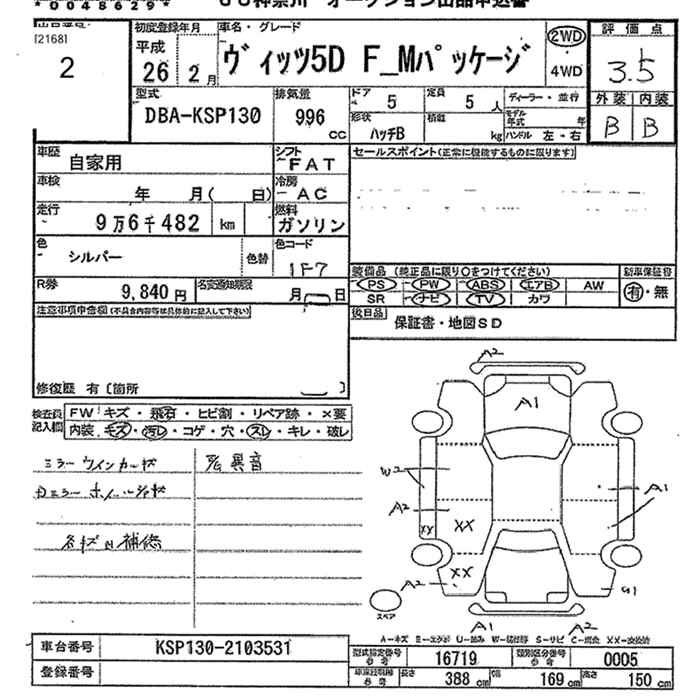 *00048629*
JU神奈川 オークション出品申込書
出品番号
[2168]
2
初度登録年月
平成
26年 2月
車名・グレード
ヴィッツ5D F_Mパッケージ
2WD
・
4WD
評価点
3.5
外装 内装
B B
型式
DBA-KSP130
排気量
996
cc
ドア 5
定員 5 人
形状 ハッチB
積載 kg
ディーラー・並行
モデル年式 年
ハンドル 左・右
車歴 自家用
シフト FAT
セールスポイント(正常に機能するものに限ります)
車検 年 月( 日)
冷房 AC
走行 9万6千482 km
燃料 ガソリン
色 シルバー 色替
色コード 1F7
装備品 (純正品に限り○をつけてください)
新車保証書
PS PW ABS エアB AW
有・無
SR ナビ TV カワ
R券 9,840円
名変通知期限 月 日
後日品 保証書・地図SD
注意事項申告欄(不具合内容等は具体的に記入して下さい)
修復歴 有〔箇所 〕
検査員記入欄
FW キズ・飛石・ヒビ割・リペア跡・×要
内装 キズ・汚レ・コゲ・穴・スレ・キレ・破レ
異音
ミラーウインカー
ミラー ホイール
補修
A2
A1
W2
A2
XX
XX
A2
A1
A1
A2
スペア
A-キズ E-エクボ U-凹み W-補修 S-サビ C-腐食 XX-交換済
車台番号 KSP130-2103531
登録番号
型式指定番号 参考 16719
類別区分番号 参考 0005
車両寸法 参考 長さ 388 cm 幅 169 cm 高さ 150 cm